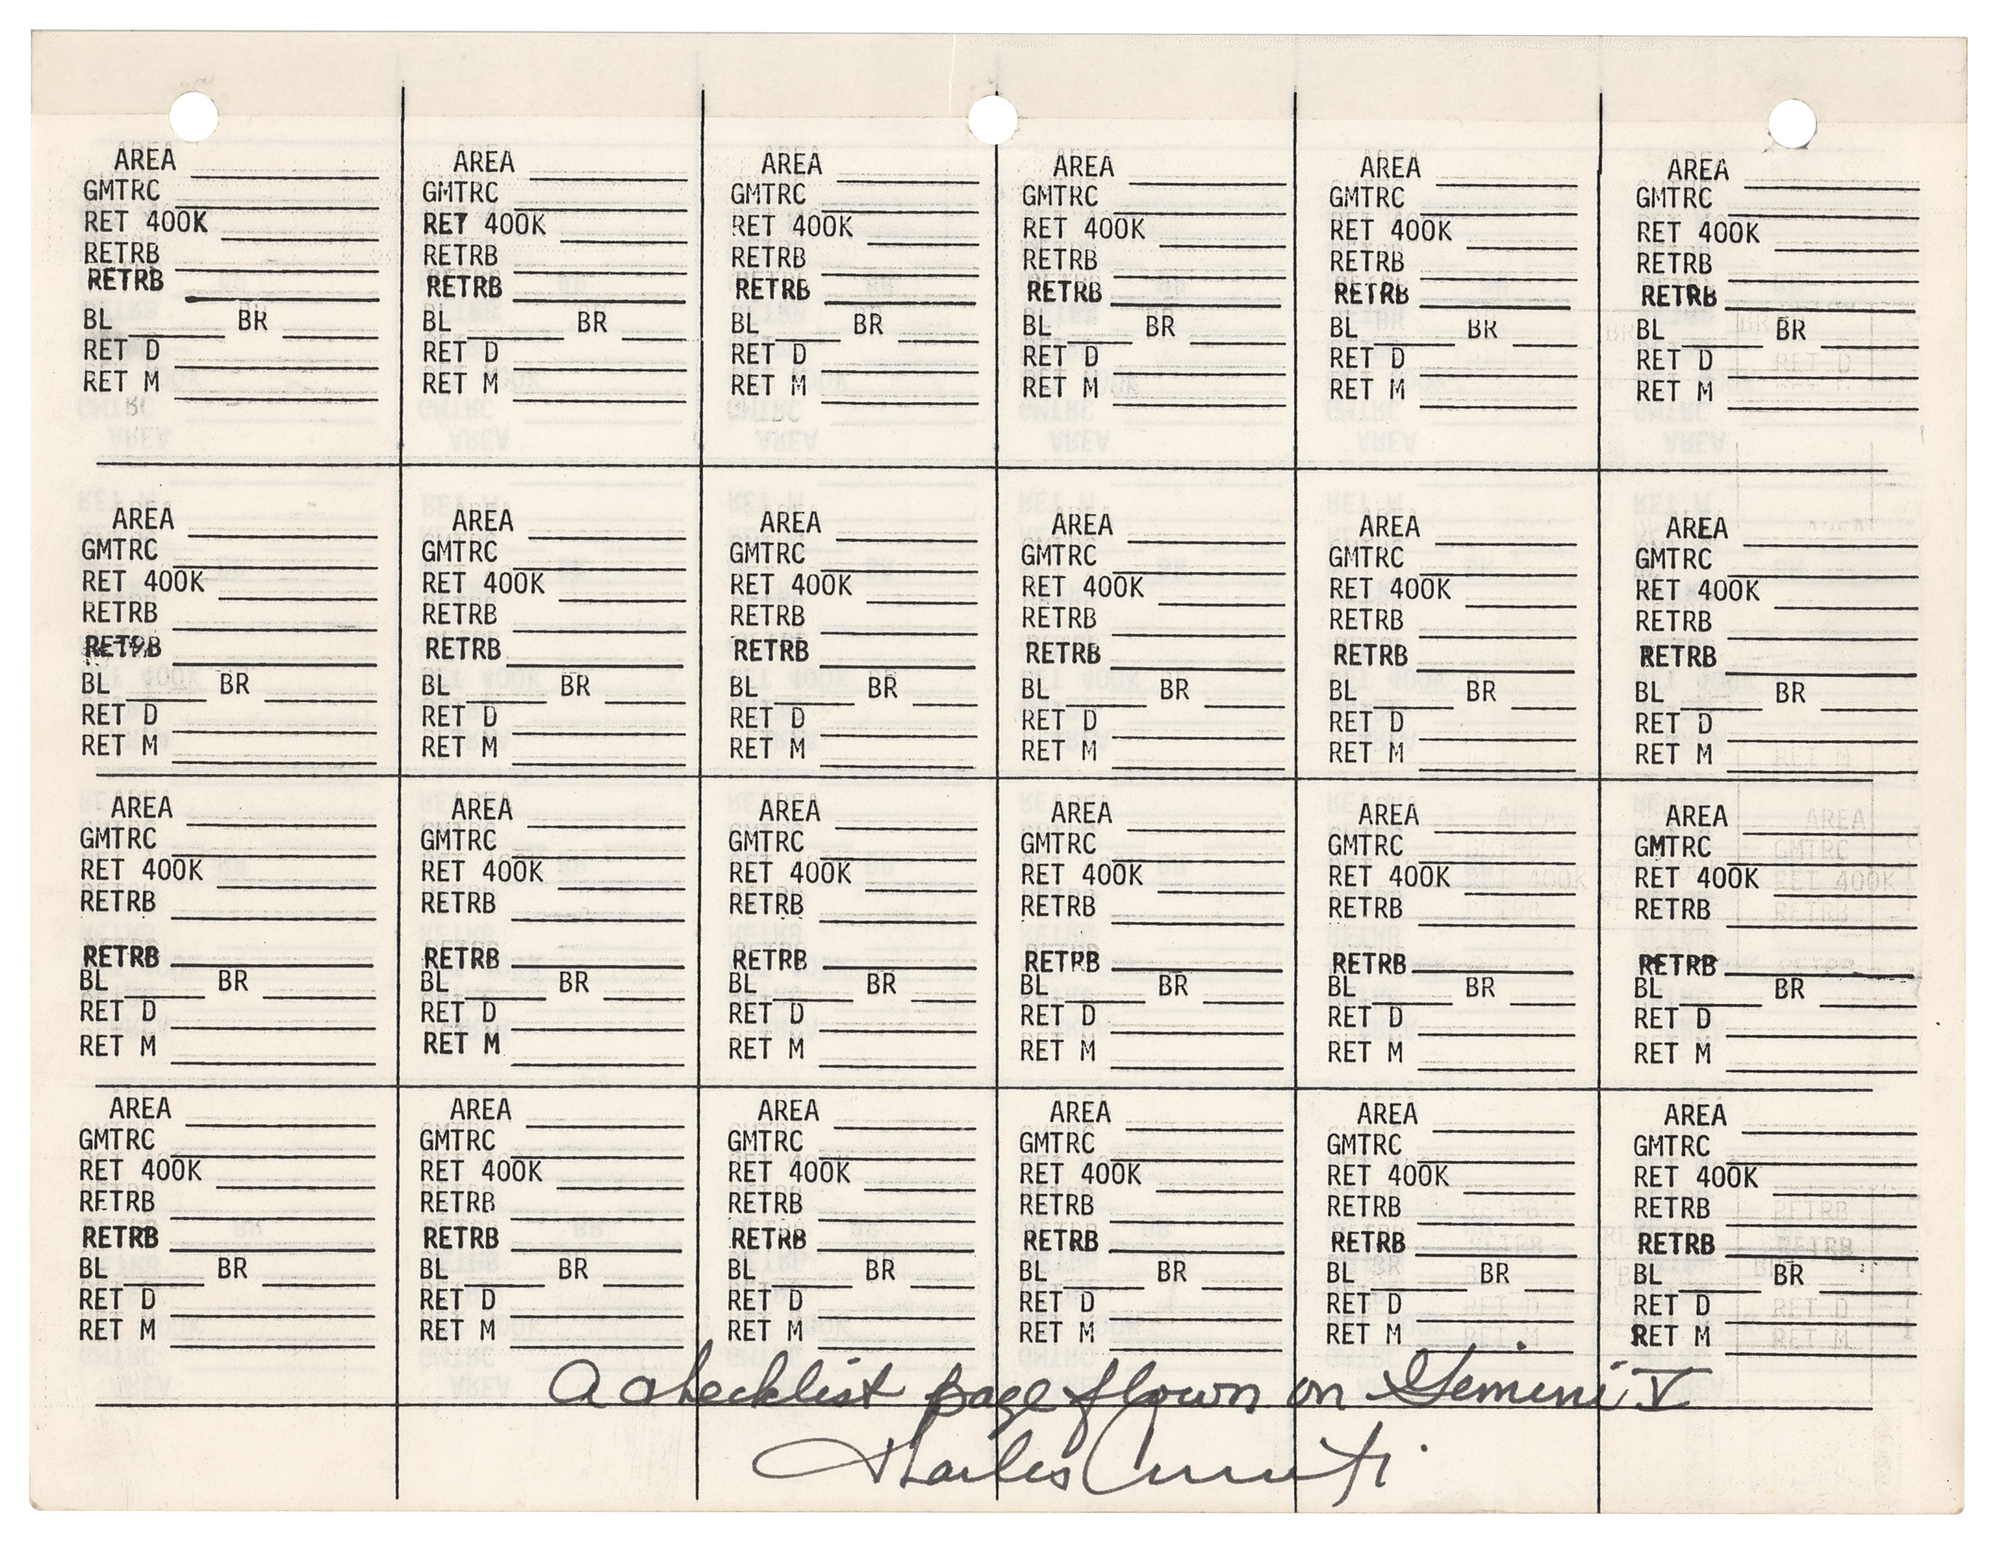 AREA AREA AREA AREA AREA AREA
GMTRC GMTRC GMTRC GMTRC GMTRC GMTRC
RET 400K RET 400K RET 400K RET 400K RET 400K RET 400K
RETRB RETRB RETRB RETRB RETRB RETRB
RETRB RETRB RETRB RETRB RETRB RETRB
BL BR BL BR BL BR BL BR BL BR BL BR
RET D RET D RET D RET D RET D RET D
RET M RET M RET M RET M RET M RET M
AREA AREA AREA AREA AREA AREA
GMTRC GMTRC GMTRC GMTRC GMTRC GMTRC
RET 400K RET 400K RET 400K RET 400K RET 400K RET 400K
RETRB RETRB RETRB RETRB RETRB RETRB
RETRB RETRB RETRB RETRB RETRB RETRB
BL BR BL BR BL BR BL BR BL BR BL BR
RET D RET D RET D RET D RET D RET D
RET M RET M RET M RET M RET M RET M
AREA AREA AREA AREA AREA AREA
GMTRC GMTRC GMTRC GMTRC GMTRC GMTRC
RET 400K RET 400K RET 400K RET 400K RET 400K RET 400K
RETRB RETRB RETRB RETRB RETRB RETRB
RETRB RETRB RETRB RETRB RETRB RETRB
BL BR BL BR BL BR BL BR BL BR BL BR
RET D RET D RET D RET D RET D RET D
RET M RET M RET M RET M RET M RET M
AREA AREA AREA AREA AREA AREA
GMTRC GMTRC GMTRC GMTRC GMTRC GMTRC
RET 400K RET 400K RET 400K RET 400K RET 400K RET 400K
RETRB RETRB RETRB RETRB RETRB RETRB
RETRB RETRB RETRB RETRB RETRB RETRB
BL BR BL BR BL BR BL BR BL BR BL BR
RET D RET D RET D RET D RET D RET D
RET M RET M RET M RET M RET M RET M
A checklist page flown on Gemini V
Charles Conrad Jr